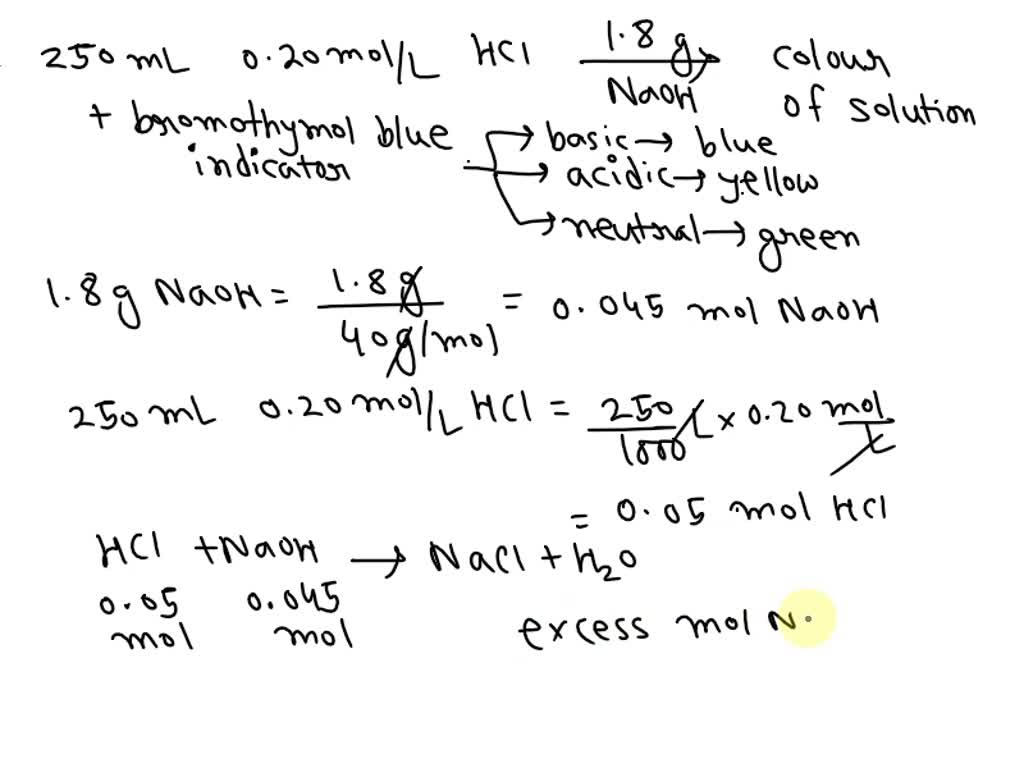 250 mL 0.20 mol/L HCl 1.8 g NaOH → colour of solution
+ bromothymol blue indicator
→ basic → blue
→ acidic → yellow
→ neutral → green
1.8 g NaOH = 1.8 g / 40 g/mol = 0.045 mol NaOH
250 mL 0.20 mol/L HCl = 250/1000 L × 0.20 mol/L
= 0.05 mol HCl
HCl + NaOH → NaCl + H₂O
0.05 mol 0.045 mol
excess mol N